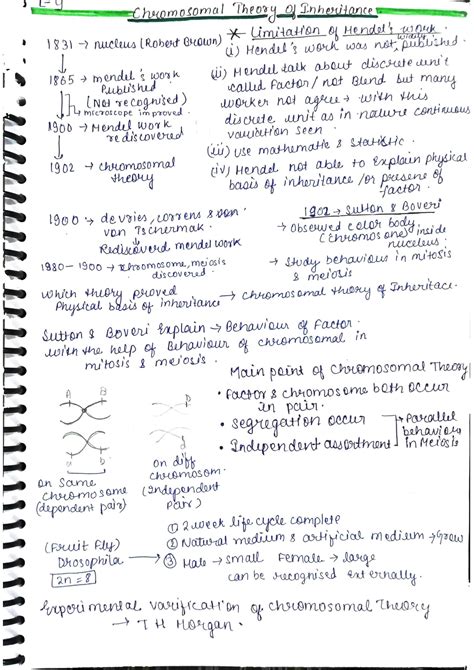 L-4
Chromosomal Theory of Inheritance
1831 → nucleus (Robert Brown)
1865 → mendel's work
Published
(Not recognised)
→ Microscope improved
1900 → Mendel work
rediscovered
1902 → chromosomal
theory
* Limitation of Mendel's work
(i) Mendel's work was not widely published.
(ii) Mendel talk about discrete unit
called Factor/not Blend but many
worker not agree → with this
discrete unit as in nature continuous
variation seen.
(iii) use mathematic & statistic.
(iv) Mendel not able to Explain physical
basis of inheritance/or presense of
factor.
1900 → devries, correns & von
von Tschermak.
Rediscoverd mendel work
1980-1900 → chromosome, meiosis
discovered.
1902 → Sutton & Boveri
→ Observed color body
(chromosome) inside
nucleus.
→ study behaviour in mitosis
& meiosis
which theory proved
Physical basis of inheritance → chromosomal theory of Inheritace.
Sutton & Boveri Explain → Behaviour of Factor.
with the help of Behaviour of chromosomal in
mitosis & meiosis.
Main point of chromosomal Theory
• Factor & chromosome both occur
in pair.
• segregation occur
• Independent assortment
→ Parallel
behaviour
in Meiosis
A B
a b
on Same
chromosome
(dependent pair)
on diff
chromosom.
(independent
Pair)
(Fruit Fly)
Drosophila
2n = 8
① 2 week life cycle complete
② Natural medium & artificial medium → Grow
③ Male → small Female → large
can be recognised Externally.
Experimental varification of chromosomal Theory
→ T H Morgan.